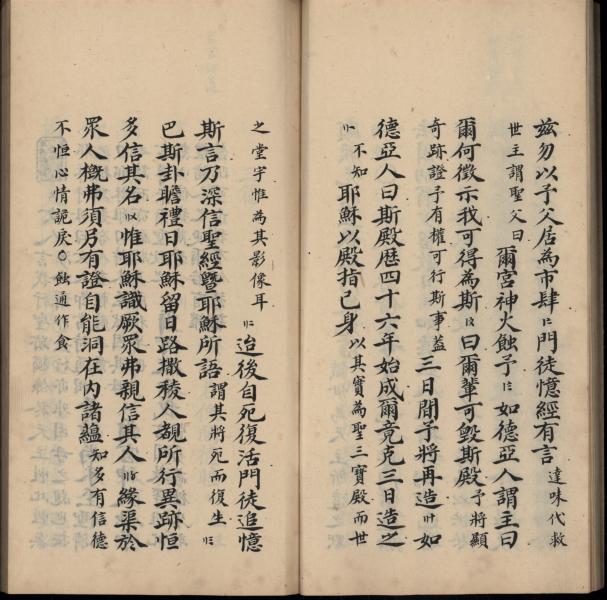 兹勿以予父居為市肆門徒憶經有言達味代救
世主謂聖父曰爾宮神火蝕予如德亞人謂主曰
爾何徵示我可得為斯曰爾輩可毀斯殿予將顯
奇跡證予有權可行斯事蓋三日間予將再造如
德亞人曰斯殿歴四十六年始成爾竟克三日造之
不知耶穌以殿指己身以其實為聖三寶殿而世
之堂宇惟為其影像耳迨後自死復活門徒追憶
斯言乃深信聖經曁耶穌所語謂其將死而復生
巴斯卦瞻禮日耶穌留日路撒稜人覩所行異跡恒
多信其名惟耶穌識厥眾弗親信其人緣渠於
眾人概弗須另有證自能洞在內諸蘊知多有信德
不恒心情詭戾○蝕通作食